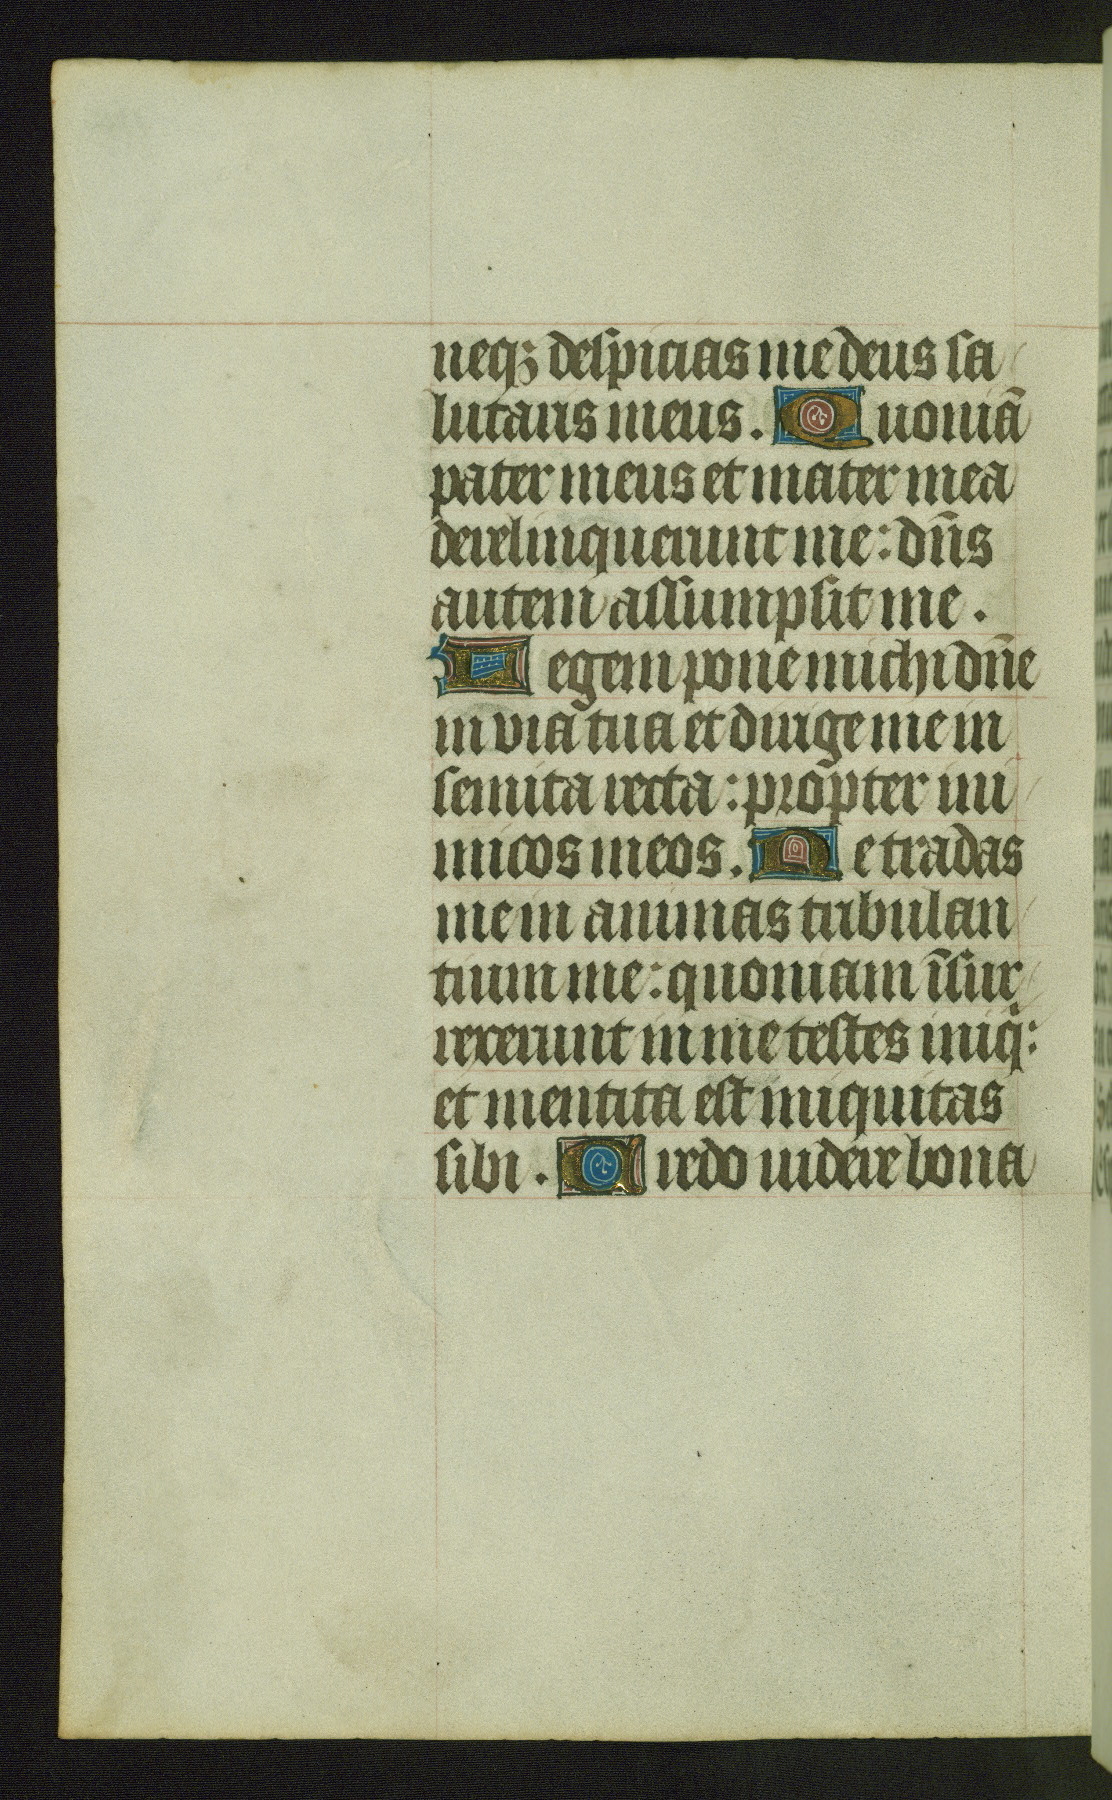 neqꝫ despicias me deus sa
lutaris meus. Quoniā
pater meus et mater mea
derelinquerunt me: dn̄s
autem assumpsit me.
Legem pone michi dn̄e
in via tua et dirige me in
semita recta: propter ini
micos meos. Ne tradas
me in animas tribulan
tium me: quoniam īsur
rexerunt in me testes iniqͥ:
et mentita est iniquitas
sibi. Credo uidere bona